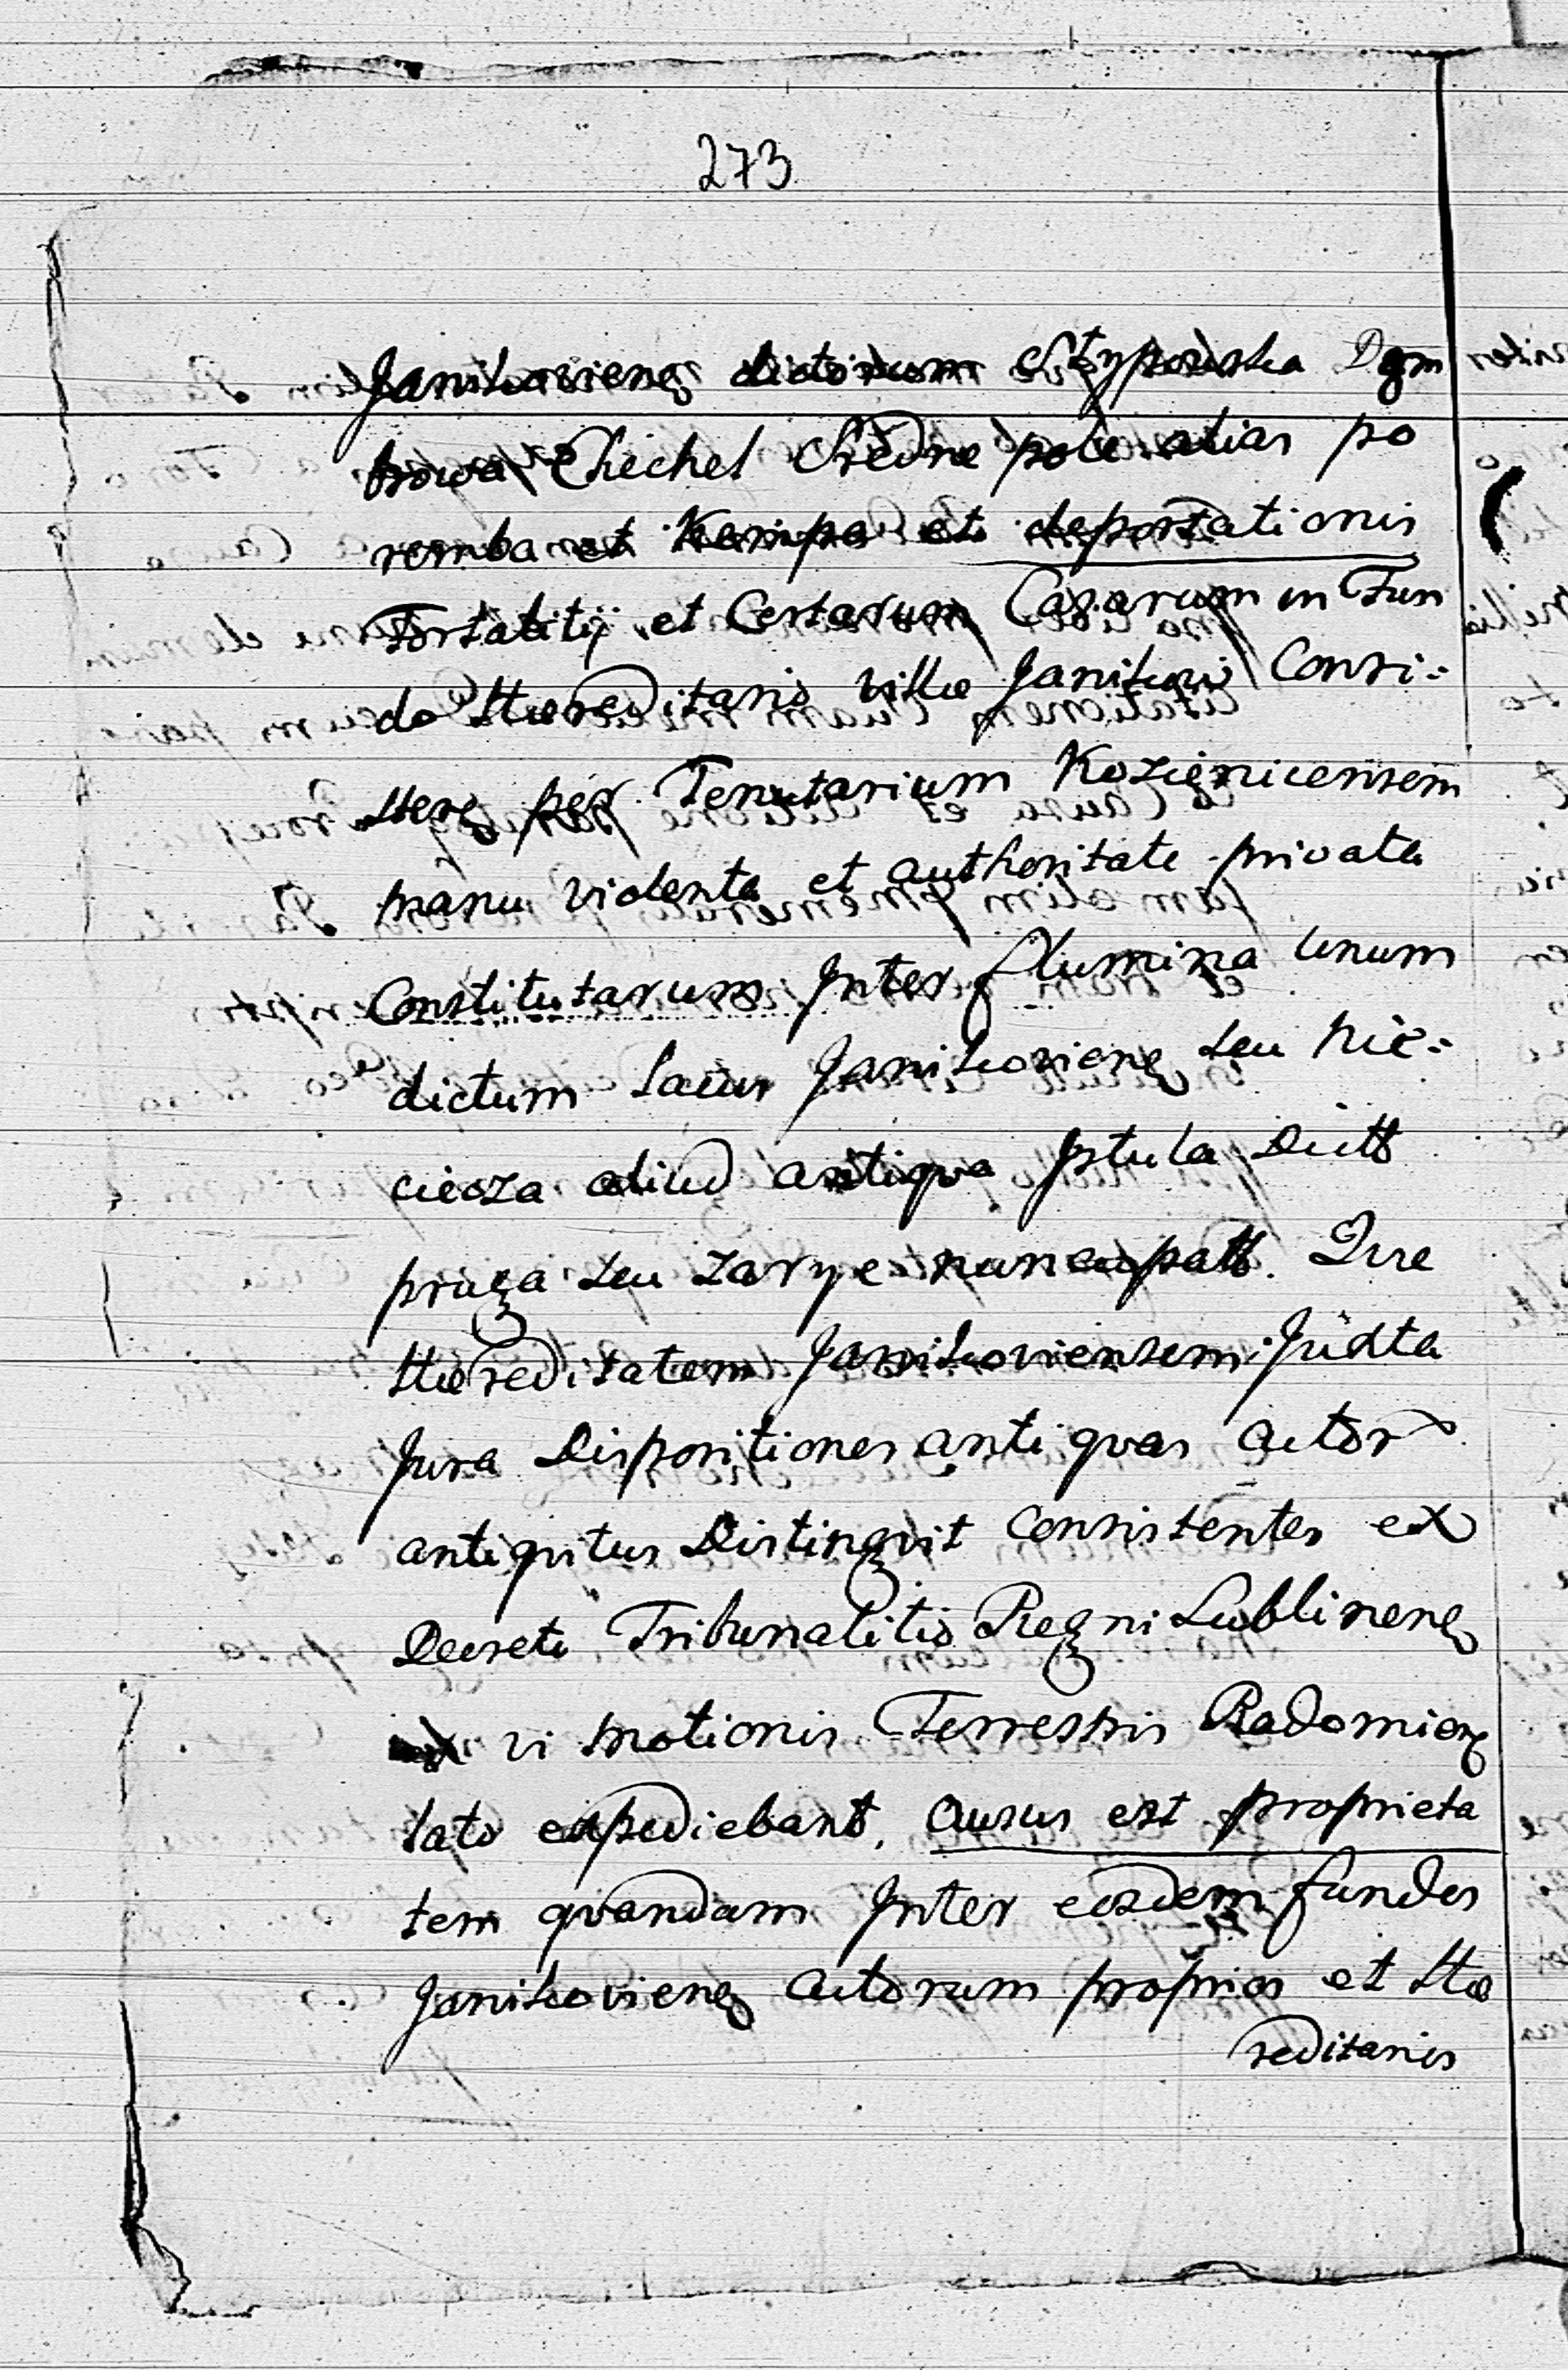 273
Janikoviens dictorum Stypulska Dąm
browa Chechel Sredne pole alias po
remba et Kempa et deportationis
Fortalitij et Certarum Casarum in Fun
do Hæreditario villæ Janikow Consi:
stens per Tenutarium Kozienicensem
manu violenta et authoritate privata
Constitutarum Inter flumina unum
dictum Lacus Janikoviens seu Nie:
cieoza aliud antiqua Istula Ditt
praga seu zarye nuncupatt. Quæ
Hæreditatem Janikoviensem Juxta
Jura Dispositiones antiquas actor
antiquitus Distingvit consistentes ex
Decreto Tribunalitio Regni Lublinens
vi motionis Terrestris Radomien
lato expediebant, ausus est proprieta
tem quandam Inter eosdem fundos
Janikoviens actorum proprios et Hæ
reditarios